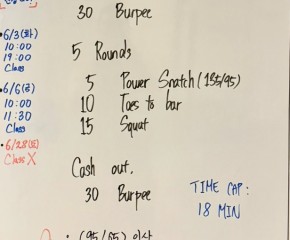 30 Burpee
•6/3(화)
10:00
19:00
Class
5 Rounds
5 Power Snatch (135/95)
10 Toes to bar
15 Squat
•6/6(금)
10:00
11:30
Class
•6/28(토)
Class X
Cash out.
30 Burpee
TIME CAP:
18 MIN
(95/65) 이상